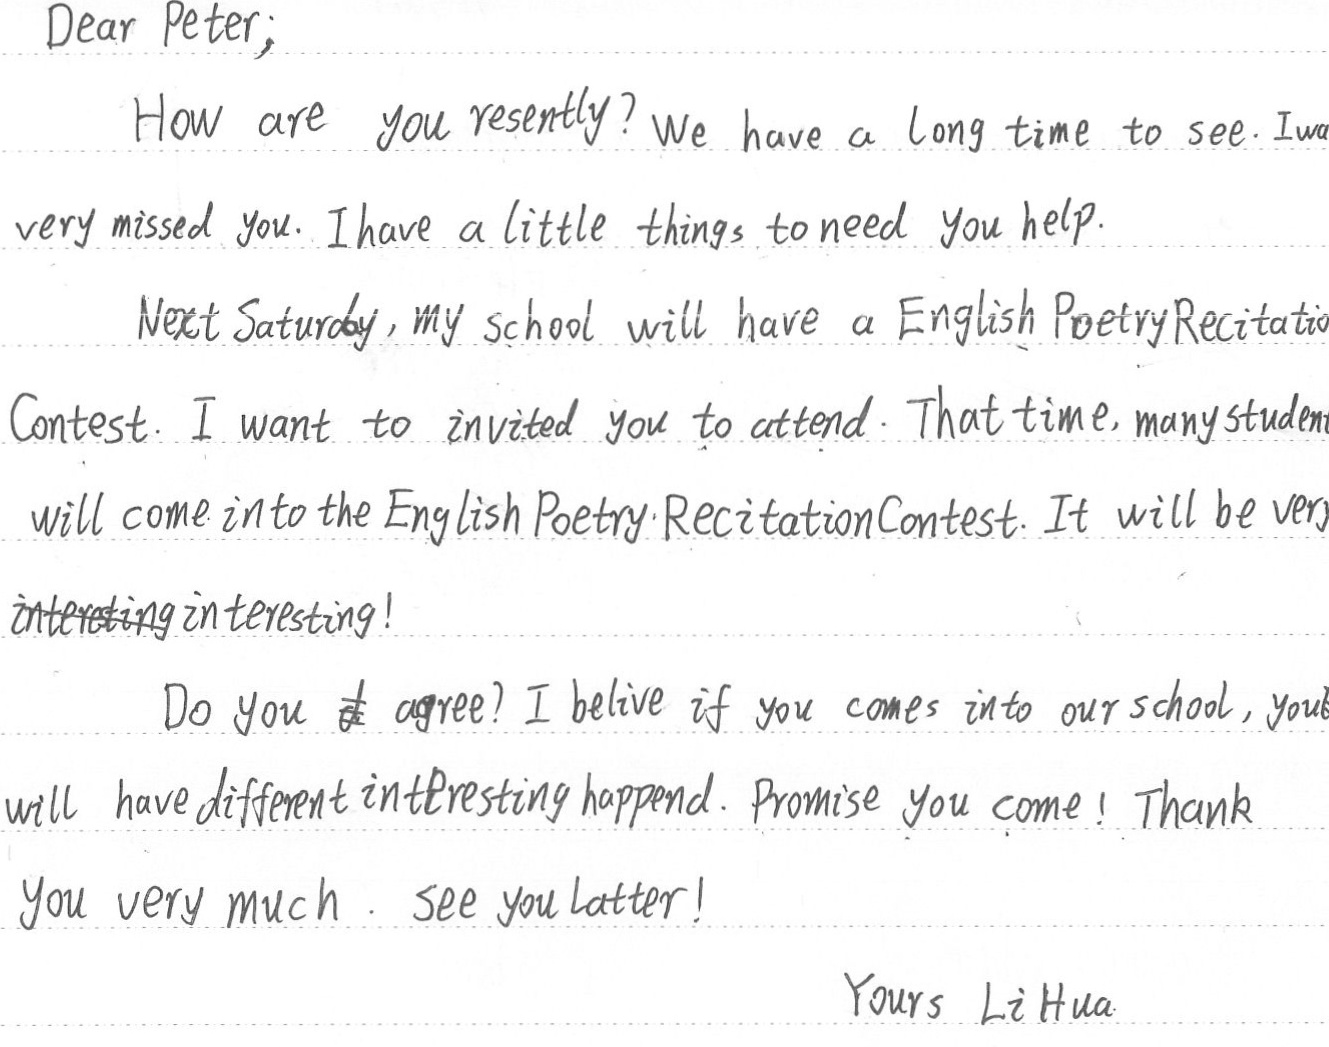 Dear Peter;
How are you resently? We have a long time to see. I wa
very missed you. I have a little things to need you help.
Next Saturday, my school will have a English Poetry Recitatio
Contest. I want to invited you to attend. That time, many student
will come into the English Poetry Recitation Contest. It will be very
interesting!
Do you agree? I belive if you comes into our school, you
will have different interesting happend. Promise you come! Thank
you very much. See you latter!
Yours Li Hua